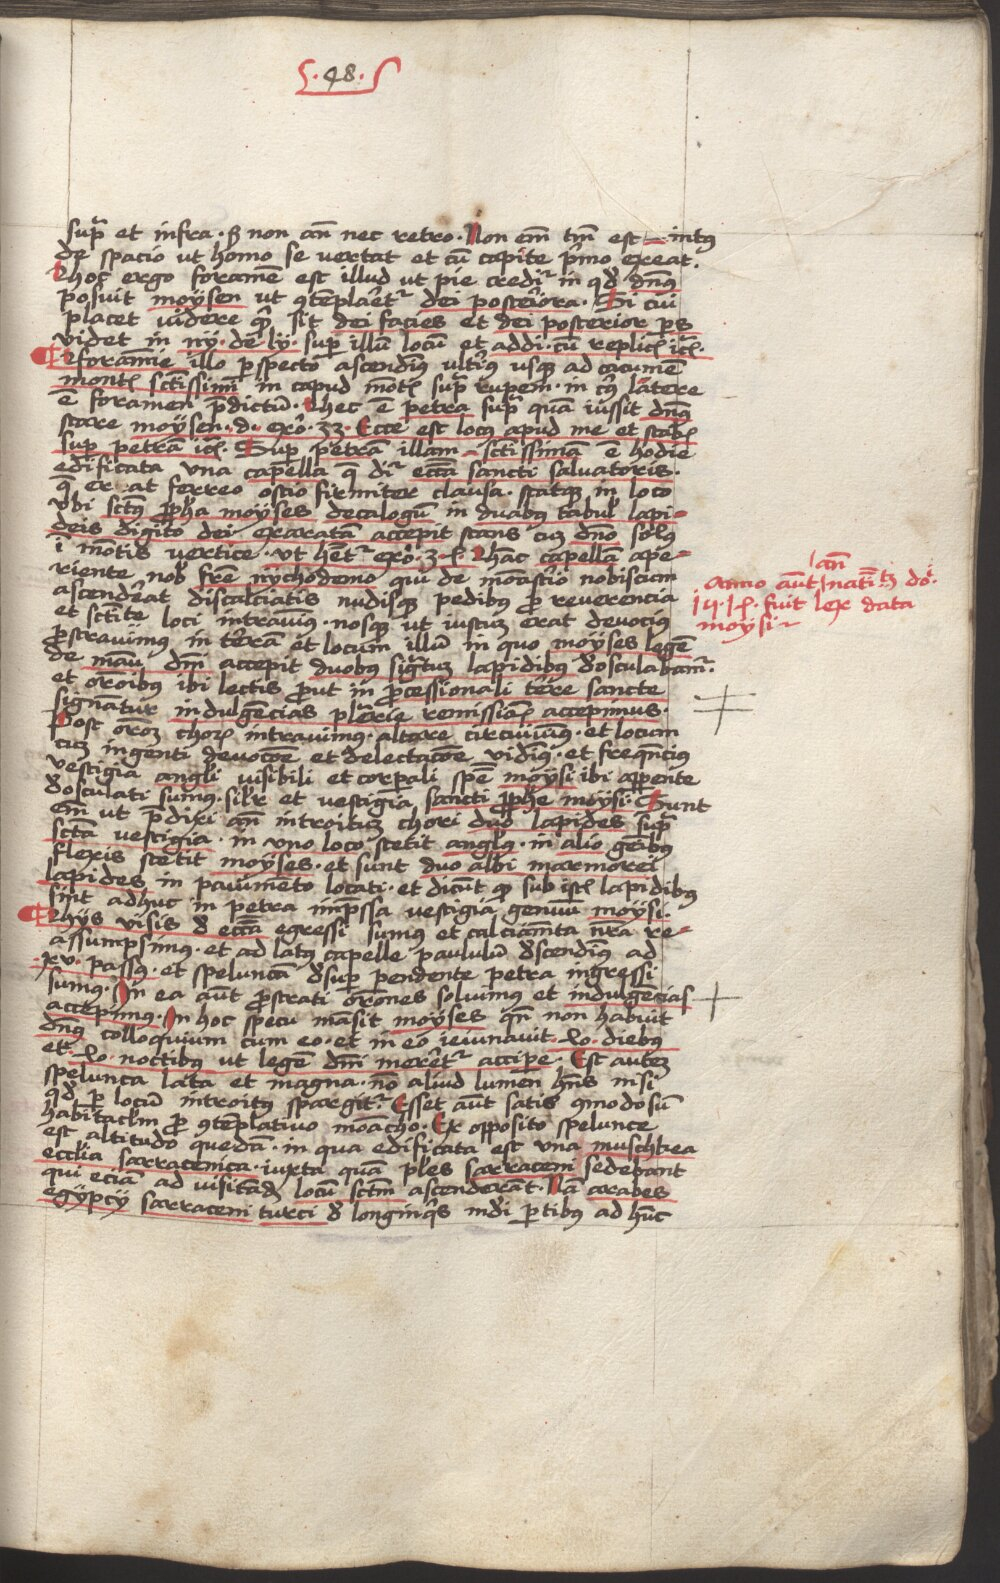 .48.
supͣ et infra · sꝫ non an̄ nec retro · Non em̄ tm̄ est intꝰ
de spacio ut homo se vertat et cū capite pͥmo exeat.
hoc ergo foramē est illud ut pie credit᷑ in qͦd dn̄ꝰ
posuit moysen ut ꝯtēplaret᷑ dei posteriora · Si cui
placet videre qͥd sit dei facies et dei posterior ps
videt in ny · de ly · sup illū locū et addi · cū replicͥ icͥ ·
foramīe illo ꝑspecto ascendimꝰ ultiꝰ usqꝫ ad cacumē
montꝭ sctīssimi in capud mōtꝭ supͣ rupem · in cꝰ latere
ē foramen p̄dictū · hec ē petra supͣ quā iussit dn̄ꝰ
stare moysen · d · exo · 33 · Ecce est locꝰ apud me et stabꝭ
sup petrā · Sup petrā illam sctissimā ē hodie
edificata vna capella q̄ dr̄ ecc̄a sancti saluatoris ·
q̄ erat ferreo ostio firmiter clausa · statqꝫ in loco
vbi sctꝰ ꝓpha moyses decalogū in duabꝰ tabul lapi-
deis digito dei exaratā accepit stans cū dn̄o solꝰ
ī mōtis vertice · vt hēt᷑ exo · hāc capellā ape-
riente nob̄ fr̄e nychodemo qui de monastīo nobiscum
ascenderat discalciatis nudisqꝫ pedibꝰ ꝓ reuerencia
et sctīte loci intrauimꝰ · nosqꝫ ut iustum erat deuociꝰ
ꝓstrauimus in terā et locum illū in quo moyses legē
de manu dn̄i accepit duobus signatum lapidibus deosculabamr̄ ·
et orōibus ibi lectis ꝓut in ꝓcessionali terre sancte
signatur indulgēcias plenarie remissiōis accepimus ·
Post orōeꝫ chorꝫ intrauimus · altare circuiuimꝰ · et locum
cum ingenti deuocōe et delectacōe vidimꝰ · et frequēciꝰ
vestigia angeli visibili et corporali spē moysi ibi apparente
deosculati sumus · silr et vestigia sancti ꝓphe moysi · Sunt
em̄ ut p̄dixi an̄ introitum chori duo lapides supͣ
sctā vestigia · in vno loco stetit anglꝰ · in alio genibꝰ
flexis stetit moyses · et sunt duo albi marmorei
lapides in pauimento locati · et dicūt qꝫ sub istꝭ lapidibꝰ
sint adhuc in petra imp̄ssa vestigia genuum moysi ·
hys visis de ecc̄a egressi sumꝰ et calciamēta nr̄a re-
assumpsimꝰ · et ad latꝰ capelle paululū descendimꝰ ad
xv · passꝰ · et speluncā desup pendente petra ingressi
sumꝰ · In ea aūt ꝓstrati orōnes soluimꝰ et indulgēcias
accepimus · In hoc specu māsit moyses qn̄ non habuit
dn̄ꝰ colloquium cum eo · et in eo ieiunauit · xl · diebꝰ
et · xl · noctibꝰ ut legē dn̄i meret᷑ accipe · Est autem
spelunca lata et magna · nō aliud lumen hn̄s nisi
qͦd ꝑ locū introitꝰ spargit᷑ · Esset aūt satis ꝯmodosū
habitaclm ꝓ ꝯtēplatiuo monacho · Ex opposito spelunce
est altitudo quedā · in qua edificata est vna muschkea
ecclia sarracenica · iuxta quā ples sarraceni sedebant
qui eciā ad visitādꝫ locū sctm̄ ascenderāt · Nā arabes
egypcy sarraceni turci de longinqͥs indi ꝑtibꝰ ad hūc
an̄
anno aūt natītꝫ do ·
fuit lex data
moysi